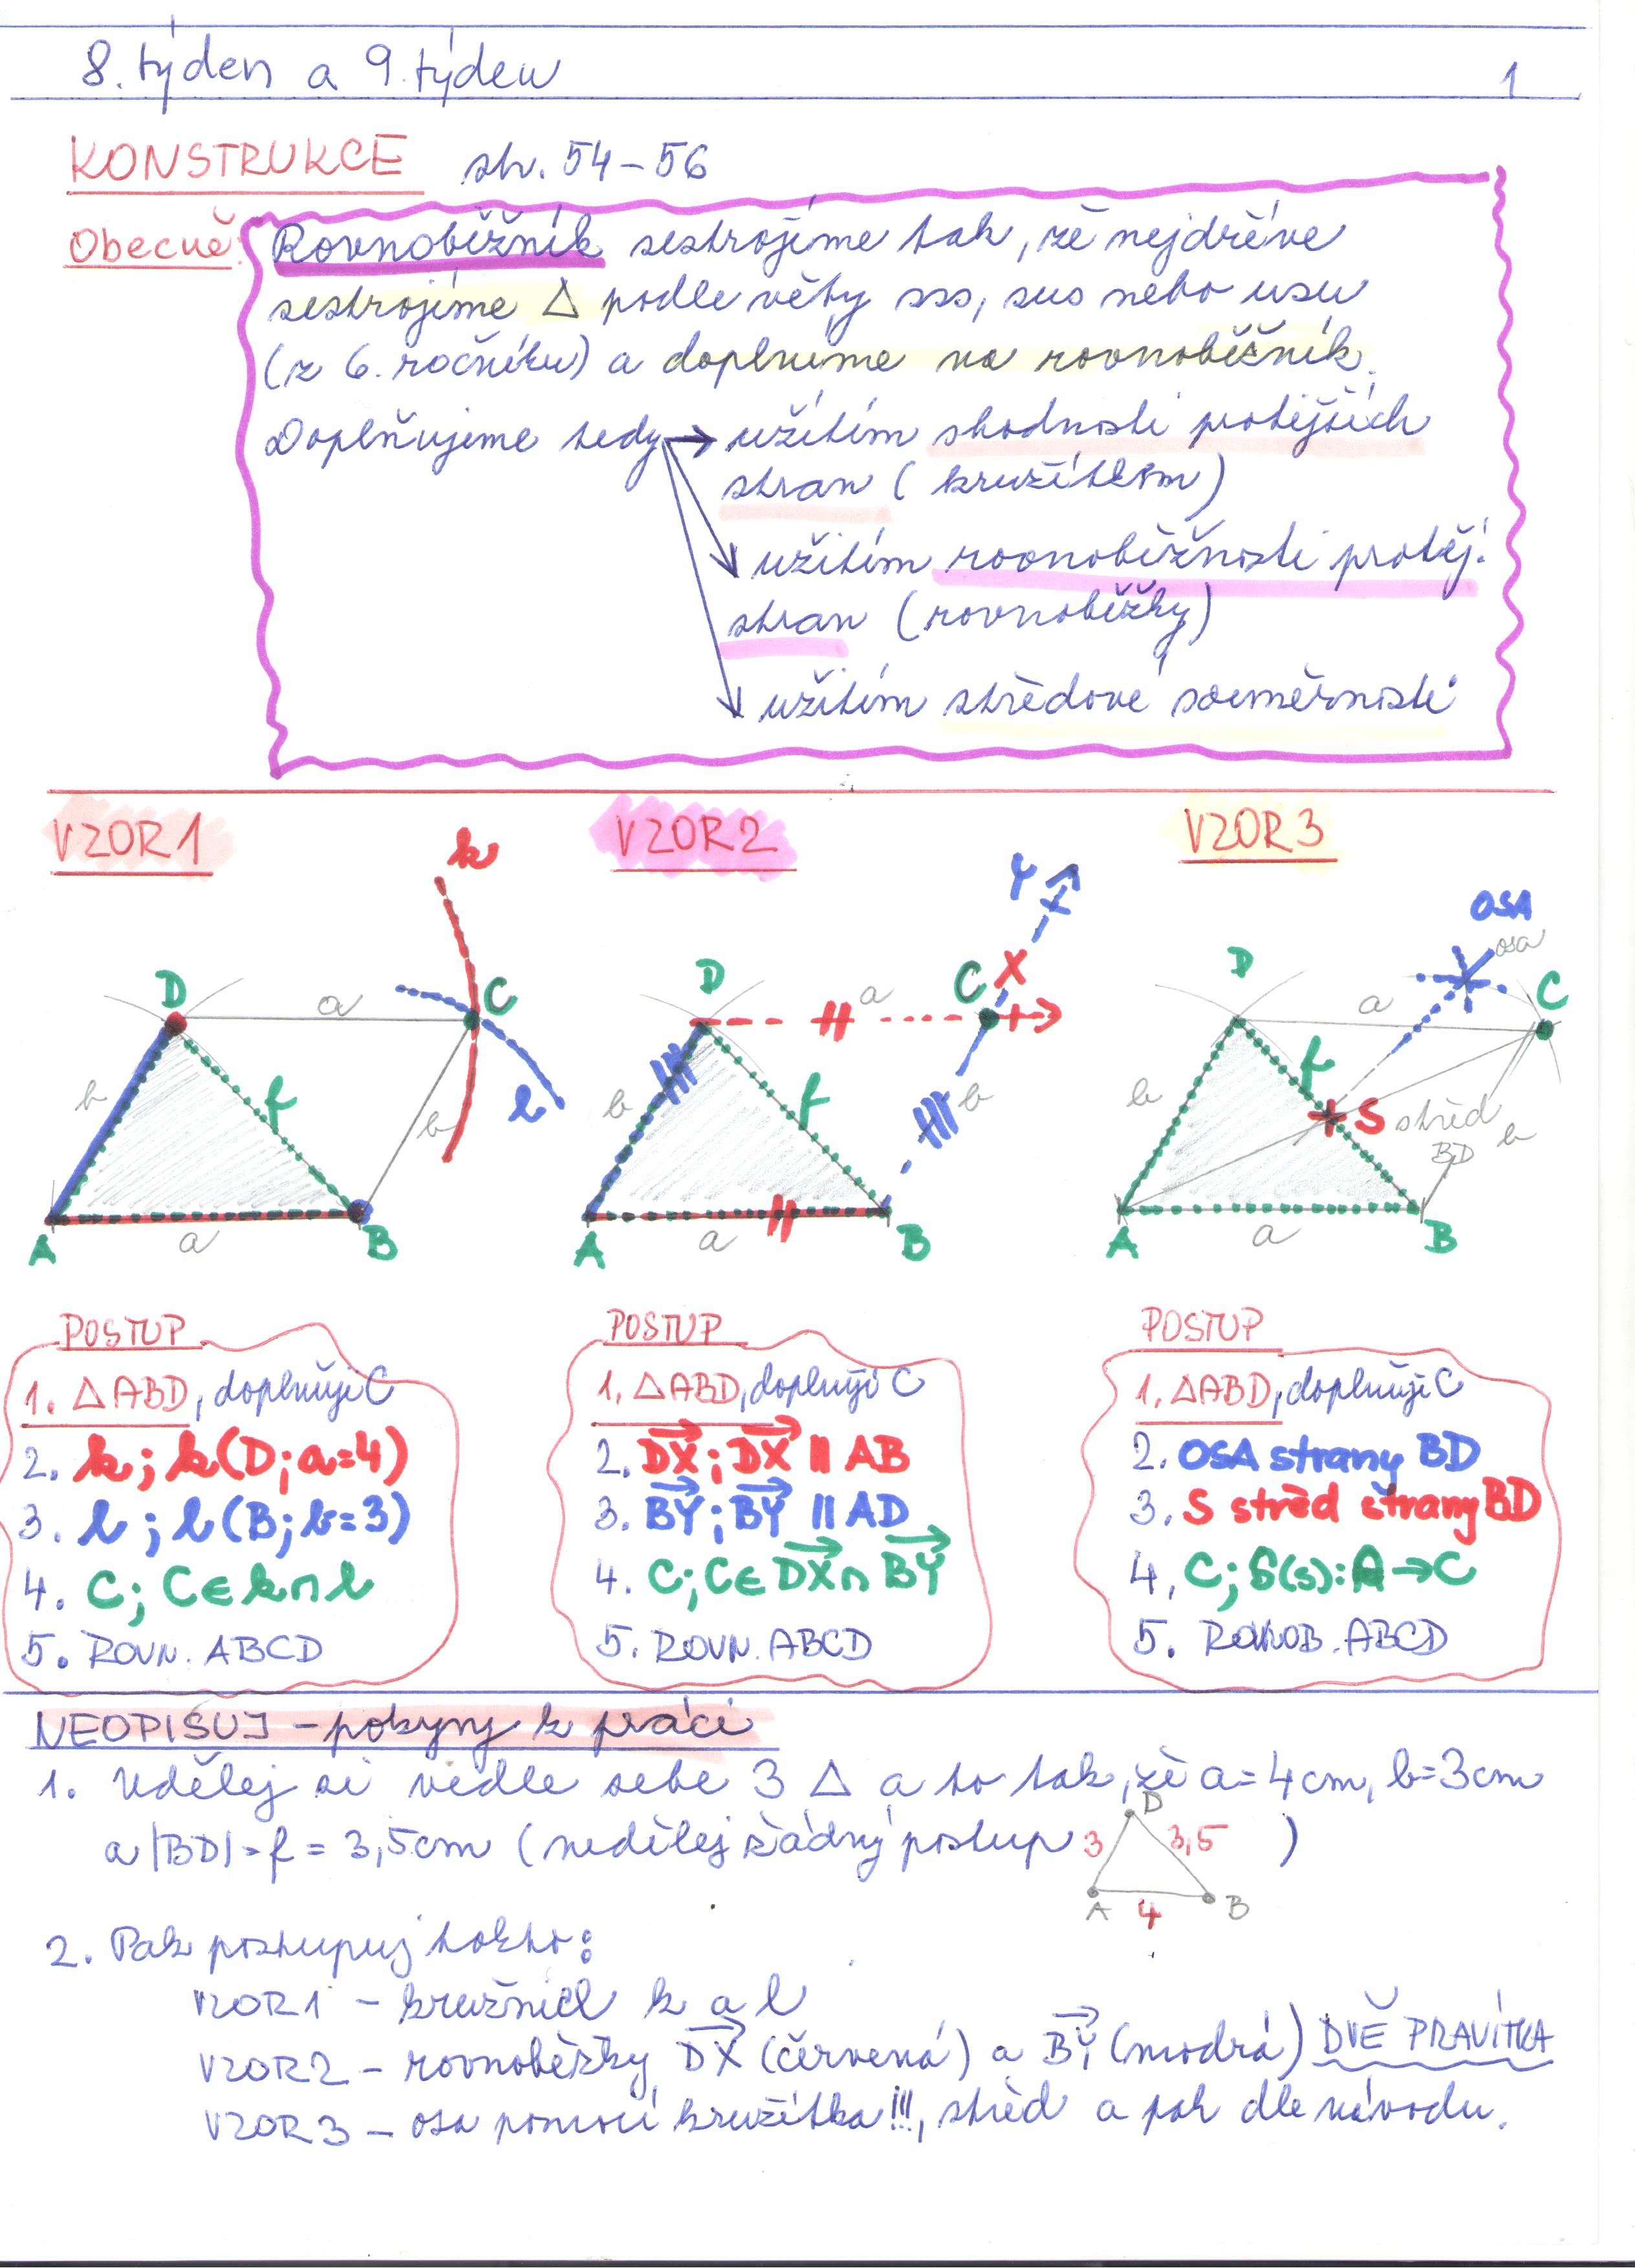 8. týden a 9. týden
1
KONSTRUKCE str. 54-56
Obecně: Rovnoběžník sestrojíme tak, že nejdříve
sestrojíme △ podle věty sss, sus nebo usu
(z 6. ročníku) a doplníme na rovnoběžník.
Doplňujeme tedy → užitím shodnosti protějších
stran (kružítkem)
užitím rovnoběžnosti protěj.
stran (rovnoběžky)
užitím středové souměrnosti
VZOR1
k
D
a
C
b
f
b
l
A
a
B
VZOR2
Y
D
a
C
X
b
f
b
A
a
B
VZOR3
OSA
osa
D
a
C
b
f
S střed
BD
b
A
a
B
POSTUP
1. △ABD, doplňuji C
2. k; k(D; a=4)
3. l; l(B; b=3)
4. C; C∈k∩l
5. ROVN. ABCD
POSTUP
1. △ABD, doplňuji C
2. DX; DX ∥ AB
3. BY; BY ∥ AD
4. C; C∈DX∩BY
5. ROVN. ABCD
POSTUP
1. △ABD, doplňuji C
2. OSA strany BD
3. S střed strany BD
4, C; S(s): A→C
5. ROVNOB. ABCD
NEOPISUJ - pokyny k práci
1. Udělej si vedle sebe 3 △ a to tak, že a=4cm, b=3cm
a |BD|=f = 3,5cm (nedělej žádný postup )
D
3
3,5
A
4
B
2. Pak postupuj takto:
VZOR1 - kružnice k a l
VZOR2 - rovnoběžky DX (červená) a BY (modrá) DVĚ PRAVÍTKA
VZOR3 - osa pomocí kružítka!!!, střed a pak dle návodu.